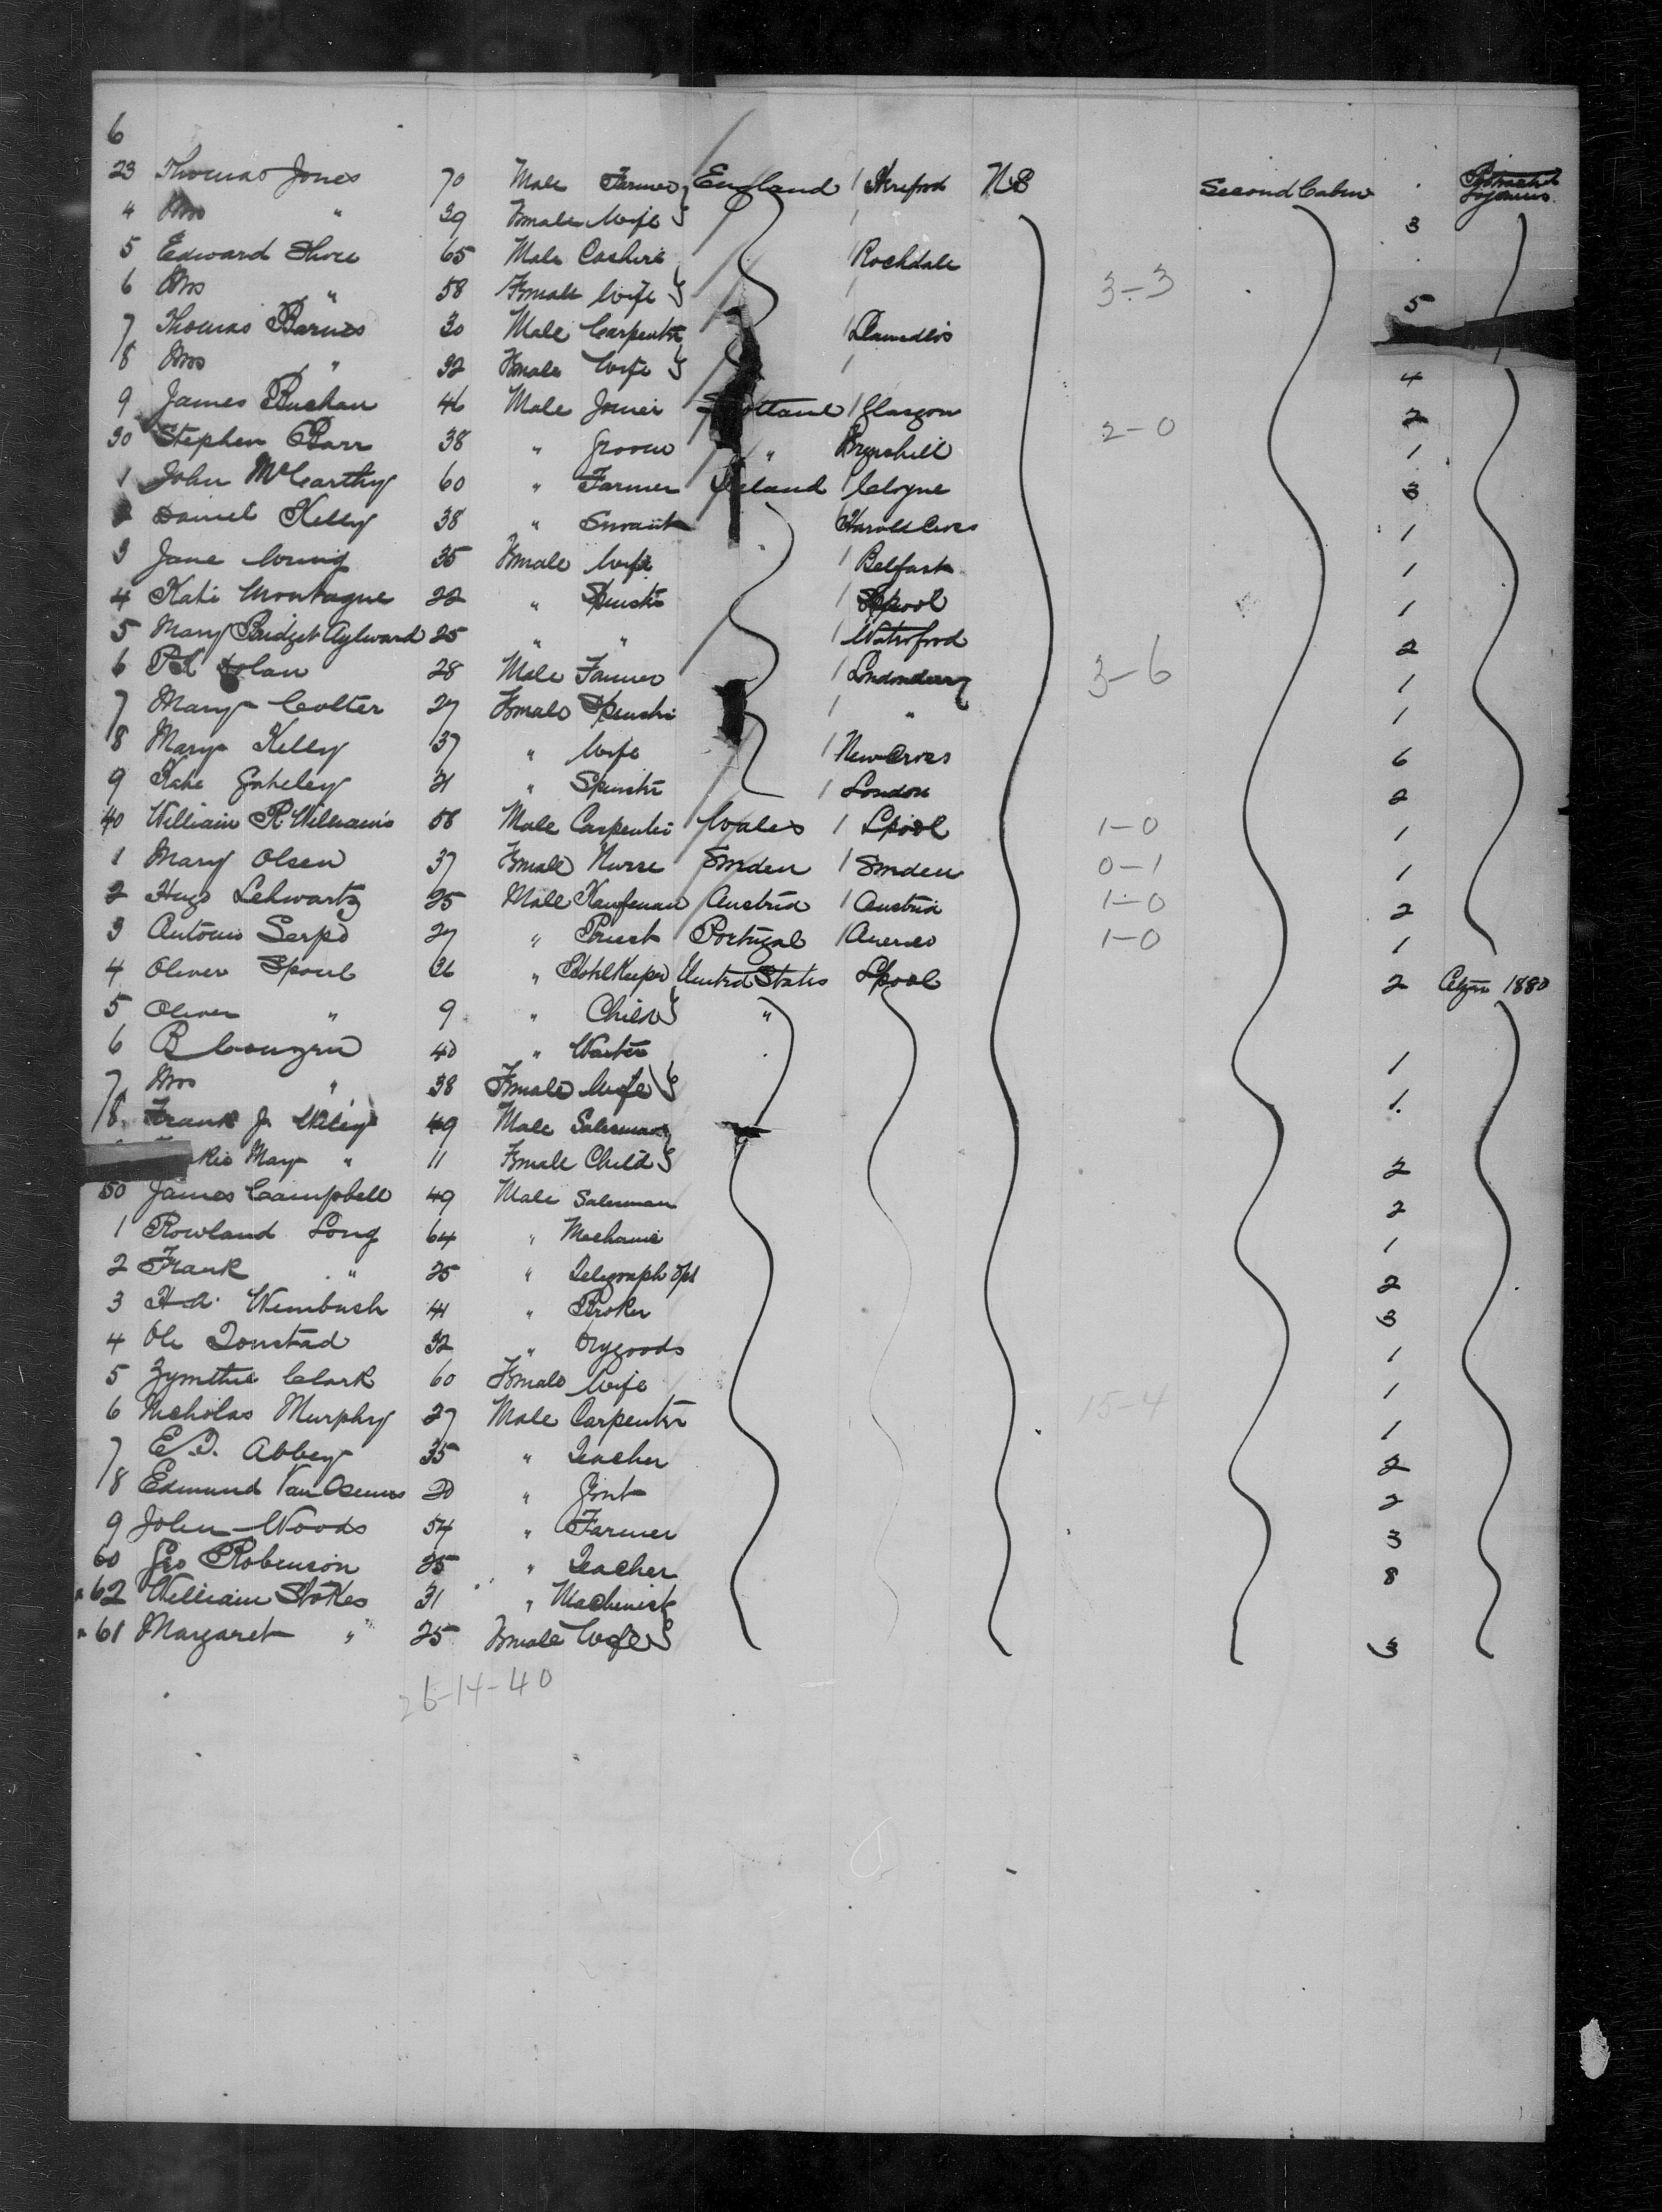 6
23 Thomas Jones 70 Male Farmer England / Hereford N.B Second Cabin Protracted Sojourns
4 Mrs " 39 Female Wife / 3
5 Edward Shore 65 Male Cashire / Rochdale
6 Mrs " 58 Female Wife / 3-3 5
7 Thomas Barnes 30 Male Carpenter /
8 Mrs " 32 Female Wife / 4
9 James Buchan 46 Male Joiner Scotland / Glasgow 2
30 Stephen Barr 38 " Groom " 2-0 1
1 John McCarthy 60 " Farmer Ireland / Cloyne 3
2 Daniel Kelly 38 " Servant Harolds Cross 1
3 Jane 35 Female Wife / Belfast 1
4 Kate Montague 22 " Spinster / Lpool 1
5 Mary Bridget Aylward 25 " " / Waterford 2
6 Pk Dolan 28 Male Farmer / Londonderry 3-6 1
7 Mary Colter 27 Female Spinster / " 1
8 Mary Kelly 37 " Wife / New Cross 6
9 Kate 21 " Spinster / London 2
40 William R Williams 58 Male Carpenter Wales / Lpool 1-0 1
1 Mary Olsen 37 Female Nurse Sweden / Sweden 0-1 1
2 Hugo Lehwartz 25 Male Kaufman Austria / Austria 1-0 2
3 Antonio Serpo 27 " Priest Portugal / 1-0 1
4 Oliver 36 " Hotel Keeper United States Lpool 2 Citzn 1880
5 Oliver " 9 " Child "
6 B 40 " Waiter 1
7 Mrs " 38 Female Wife
8 Frank J. Wiley 49 Male Salesman 1
May " 11 Female Child 2
50 James Campbell 49 Male Salesman 2
1 Rowland Long 64 " Mechanic 1
2 Frank " 25 " Telegraph Opt 2
3 H.A. Wimbush 41 " Broker 3
4 Ole Tonstad 32 " Drygoods 1
5 Zymthie Clark 60 Female Wife 1
6 Nicholas Murphy 27 Male Carpenter 15-4 1
7 E.T. Abbey 35 " Teacher 2
8 Edmund Van 20 " Gent 2
9 John Woods 54 " Farmer 3
60 Geo Robinson 25 " Teacher 8
62 William Stokes 31 " Machinist
61 Margaret " 25 Female Wife 3
26-14-40